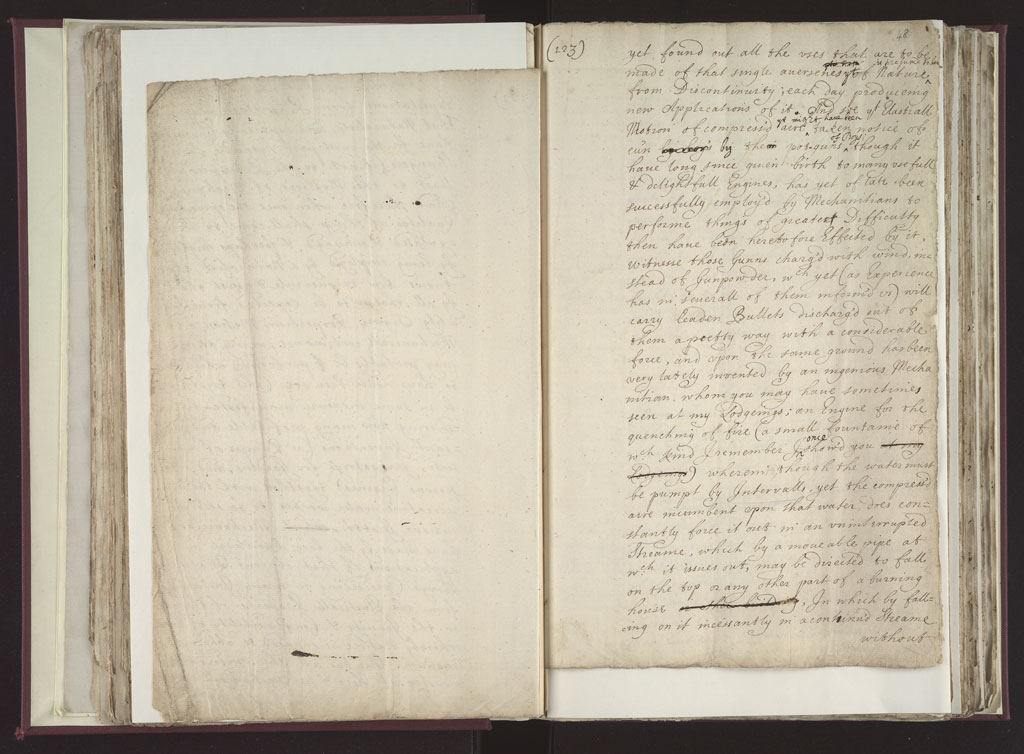 (123)
48
yet found out all the vses that are to be
made of that single auersenes of Nature
from Discontinuity; each day produceing
new Applications of it. And ye Elasticall
yt might have been
Motion of compress'd aire, taken notice of
of Boys
eun by them potguns, though it
have long since giuen birth to many vsefull
& delightfull Engines, has yet of late been
successfully employ'd by Mechanitians to
performe things of greater Difficulty
then have been heretofore Effected by it.
Witnesse those Gunns charg'd with wind, in=
stead of Gunpowder, wch yet (as Experience
has in seuerall of them inform'd vs) will
carry leaden Bullets discharg'd out of
them a pretty way with a considerable
force, and upon the same ground has been
very lately invented by an ingenious Mecha
nitian, whom you may have sometimes
seen at my Lodgeings; an Engine for the
quenching of fire (a small fountaine of
once
wch kind I remember I show'd you at my
Lodgeings) wherein, though the water must
be pumpt by Intervalls, yet the compress'd
aire incumbent upon that water, does con=
stantly force it out in an vninterrupted
Streame, which by a moveable pipe at
wch it issues out, may be directed to fall
on the top or any other part of a burning
house. In which by fall=
=ing on it incessantly in a continu'd Streame
without